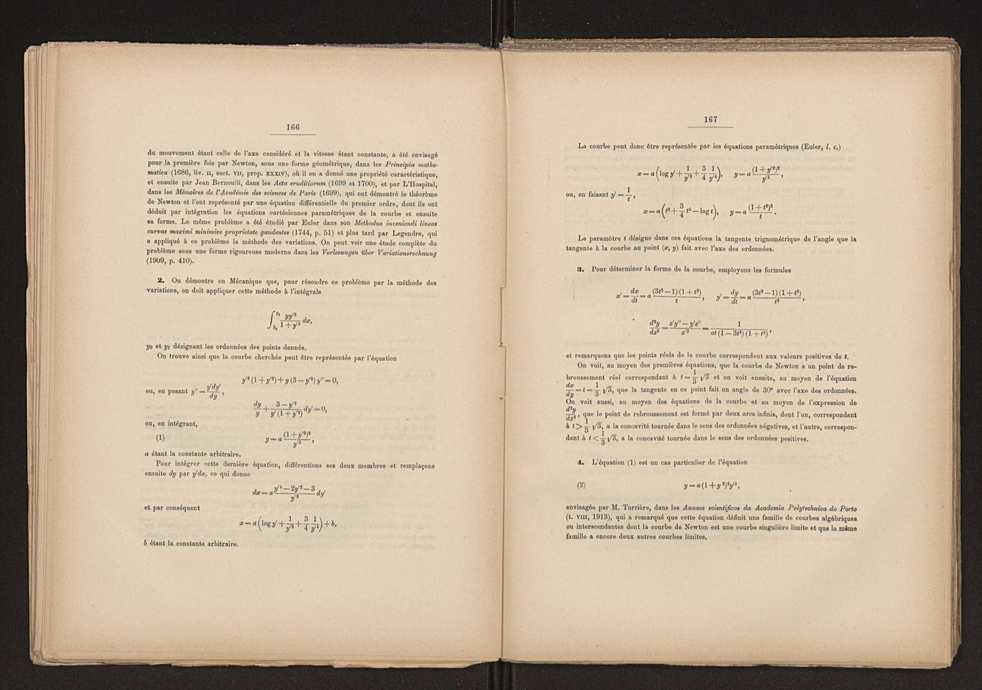 166
du mouvement étant celle de l'axe considéré et la vitesse étant constante, a été envisagé
pour la première fois par Newton, sous une forme géométrique, dans les Principia mathe-
matica (1686, liv. II, sect. VII, prop. XXXIV), où il en a donné une propriété caractéristique,
et ensuite par Jean Bernoulli, dans les Acta eruditorum (1699 et 1700), et par L'Hospital,
dans les Mémoires de l'Académie des sciences de Paris (1699), qui ont démontré le théorème
de Newton et l'ont représenté par une équation différentielle du premier ordre, dont ils ont
déduit par intégration les équations cartésiennes paramétriques de la courbe et ensuite
sa forme. Le même problème a été étudié par Euler dans son Methodus inveniendi lineas
curvas maximi minimive proprietate gaudentes (1744, p. 51) et plus tard par Legendre, qui
a appliqué à ce problème la méthode des variations. On peut voir une étude complète du
problème sous une forme rigoureuse moderne dans les Vorlesungen über Variationsrechnung
(1909, p. 410).
2. On démontre en Mécanique que, pour résoudre ce problème par la méthode des
variations, on doit appliquer cette méthode à l'intégrale
∫ yy'³/(1+y'²) dx,
y₀ et y₁ désignant les ordonnées des points donnés.
On trouve ainsi que la courbe cherchée peut être représentée par l'équation
y'²(1+y'²)+y(3−y'²)y''=0,
ou, en posant y''=y'dy'/dy,
dy/y + (3−y'²)/(y'(1+y'²)) dy'=0,
ou, en intégrant,
(1) y=a (1+y'²)²/y'³,
a étant la constante arbitraire.
Pour intégrer cette dernière équation, différentions ses deux membres et remplaçons
ensuite dy par y'dx, ce qui donne
dx=a (y'⁴−2y'²−3)/y'⁵ dy'
et par conséquent
x=a(log y'+1/y'²+3/4 1/y'⁴)+b,
b étant la constante arbitraire.
167
La courbe peut donc être représentée par les équations paramétriques (Euler, l. c.)
x=a(log y'+1/y'²+3/4 1/y'⁴), y=a (1+y'²)²/y'³,
ou, en faisant y'=1/t,
x=a(t²+3/4 t⁴−log t), y=a (1+t²)²/t.
Le paramètre t désigne dans ces équations la tangente trignométrique de l'angle que la
tangente à la courbe au point (x, y) fait avec l'axe des ordonnées.
3. Pour déterminer la forme de la courbe, employons les formules
x'=dx/dt=a (3t²−1)(1+t²)/t, y'=dy/dt=a (3t²−1)(1+t²)/t²,
d²y/dx²=(x'y''−y'x'')/x'³=1/(at(1−3t²)(1+t²)),
et remarquons que les points réels de la courbe correspondent aux valeurs positives de t.
On voit, au moyen des premières équations, que la courbe de Newton a un point de re-
broussement réel correspondant à t=1/3 √3 et on voit ensuite, au moyen de l'équation
dx/dy=t=1/3 √3, que la tangente en ce point fait un angle de 30° avec l'axe des ordonnées.
On voit aussi, au moyen des équations de la courbe et au moyen de l'expression de
d²y/dx², que le point de rebroussement est formé par deux arcs infinis, dont l'un, correspondant
à t>1/3 √3, a la concavité tournée dans le sens des ordonnées négatives, et l'autre, correspon-
dant à t<1/3 √3, a la concavité tournée dans le sens des ordonnées positives.
4. L'équation (1) est un cas particulier de l'équation
(2)
envisagée par M. Turrière, dans les Annaes scientificos da Academia Polytechnica do Porto
(t. VIII, 1913), qui a remarqué que cette équation définit une famille de courbes algébriques
ou interscendantes dont la courbe de Newton est une courbe singulière limite et que la même
famille a encore deux autres courbes limites.